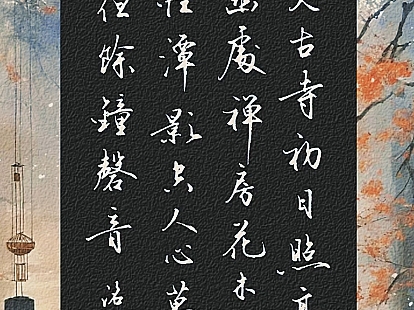 入古寺初日照高
幽處禅房花木
性潭影空人心萬
但餘鐘磬音